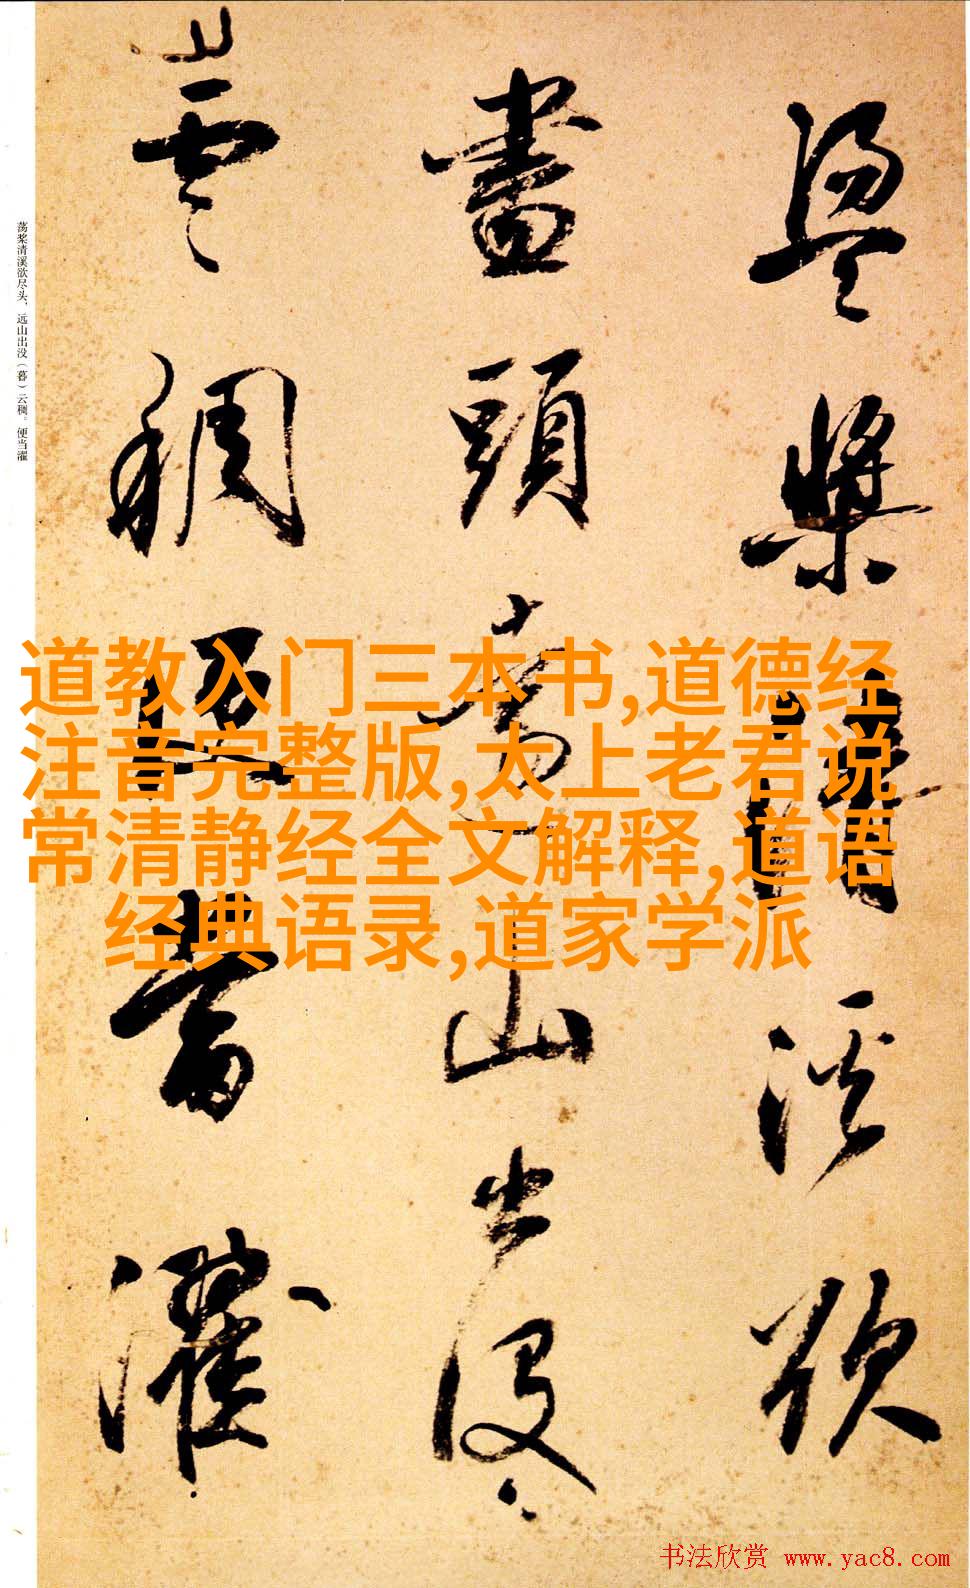 盪槳清溪欲
盡頭遠山出没
雲稠便當濯
荡桨清溪欲尽头，远山出没（暮）云稠。便当濯
道教入门三本书,道德经
注音完整版,太上老君说
常清静经全文解释,道语
经典语录,道家学派
书法欣赏 www.yac8.com